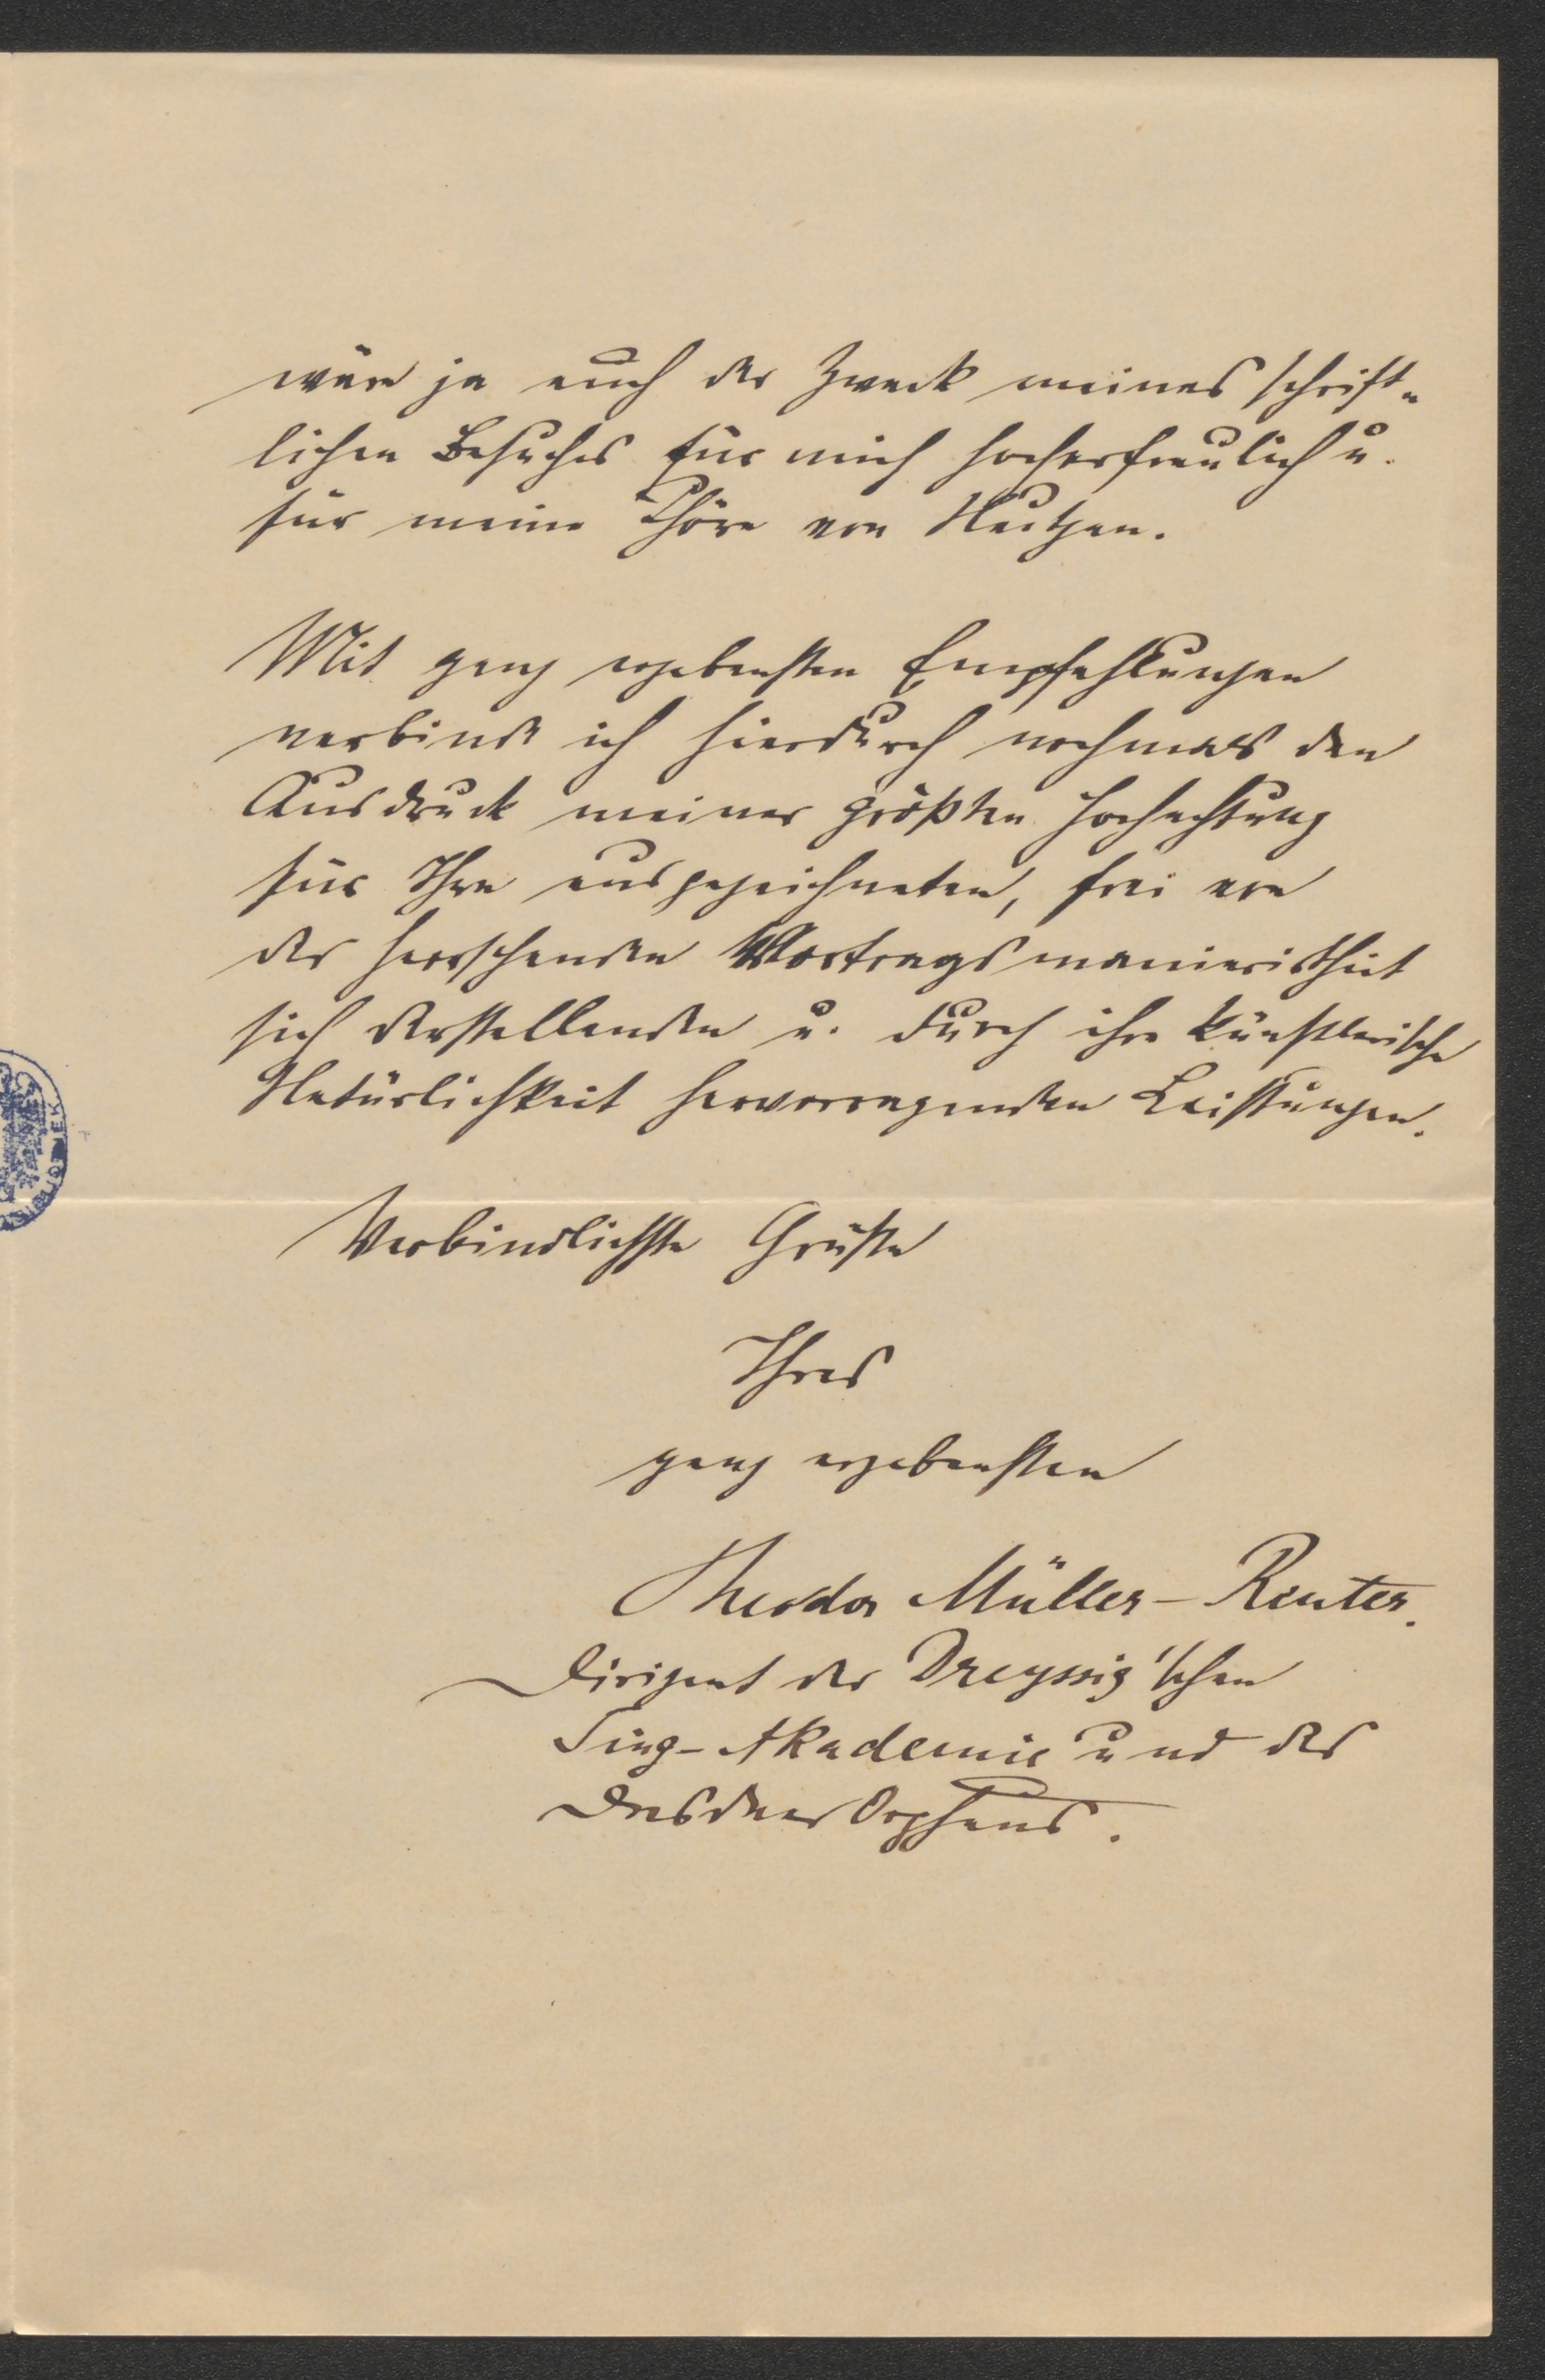 wäre ja auch der Zweck meines schrift-
lichen Besuches für mich hocherfreulich u.
für meine Chöre von Nutzen.
Mit ganz ergebensten Empfehlungen
verbinde ich hierdurch nochmals den
Ausdruck meiner größten Hochachtung
für Ihre ausgezeichneten, frei von
der herrschenden
sich darstellenden u. durch ihre künstlerische
Natürlichkeit hervorragenden Leistungen.
Verbindlichste Grüße
Ihres
ganz ergebensten
Theodor Müller-Reuter.
Dirigent der Dreyssig'schen
Sing-Akademie und des
Dresdner Orpheus.